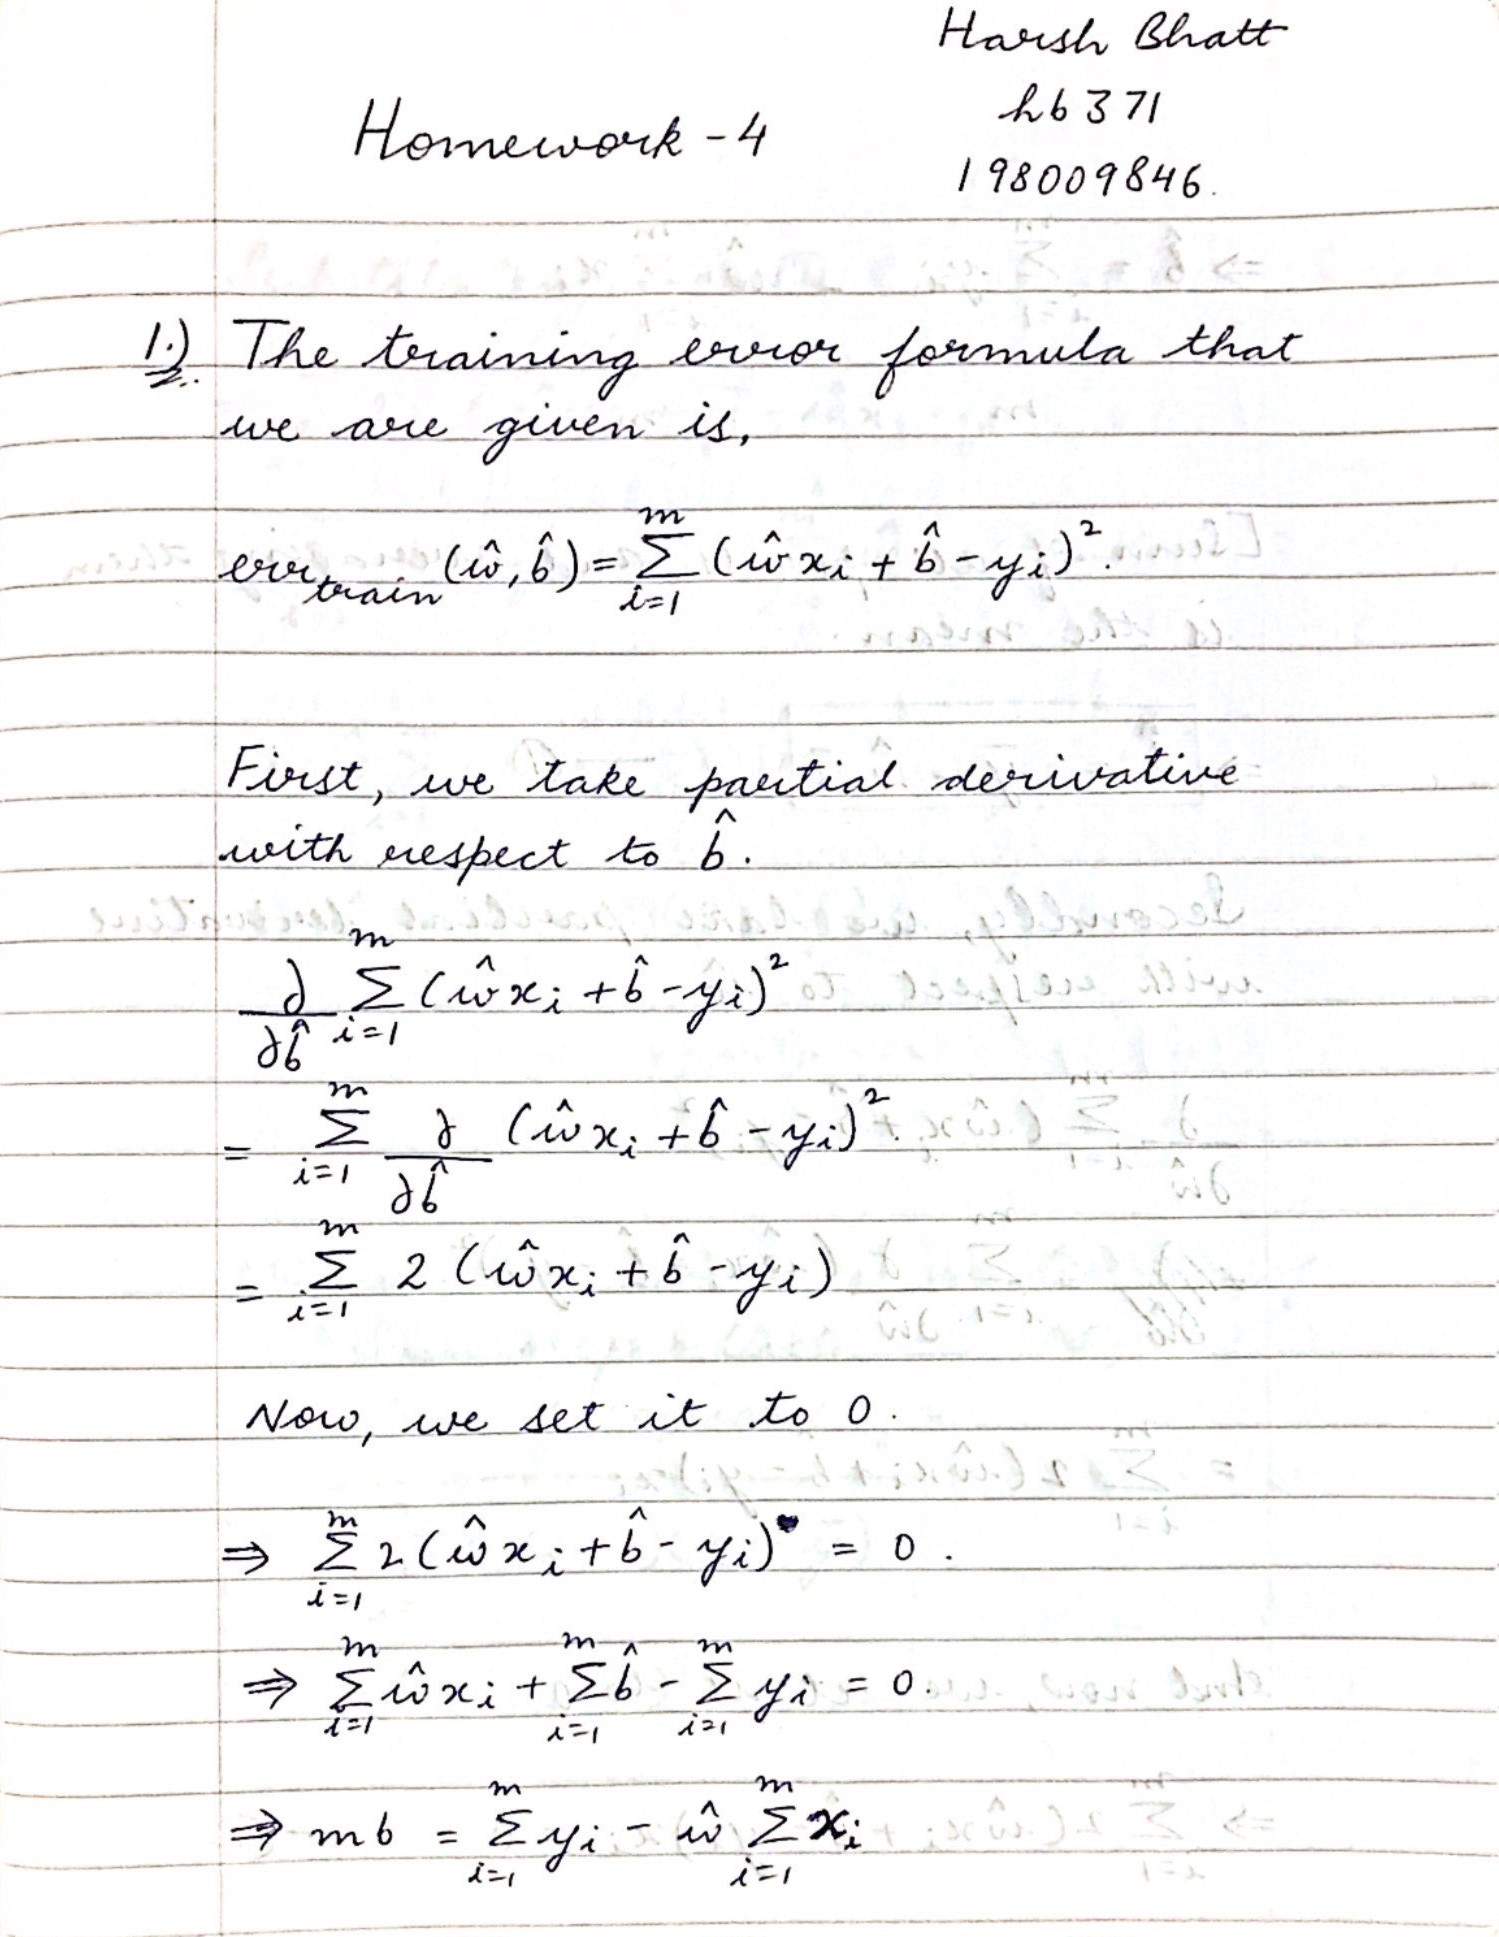 Harsh Bhatt
hb371
Homework - 4
198009846.
1.) The training error formula that
we are given is,
err_train (ŵ, b̂) = Σ_{i=1}^{m} (ŵx_i + b̂ - y_i)².
First, we take partial derivative
with respect to b̂.
∂/∂b̂ Σ_{i=1}^{m} (ŵx_i + b̂ - y_i)²
= Σ_{i=1}^{m} ∂/∂b̂ (ŵx_i + b̂ - y_i)².
= Σ_{i=1}^{m} 2 (ŵx_i + b̂ - y_i)
Now, we set it to 0.
⇒ Σ_{i=1}^{m} 2(ŵx_i + b̂ - y_i) = 0.
⇒ Σ_{i=1}^{m} ŵx_i + Σ_{i=1}^{m} b̂ - Σ_{i=1}^{m} y_i = 0.
⇒ mb = Σ_{i=1}^{m} y_i - ŵ Σ_{i=1}^{m} x_i